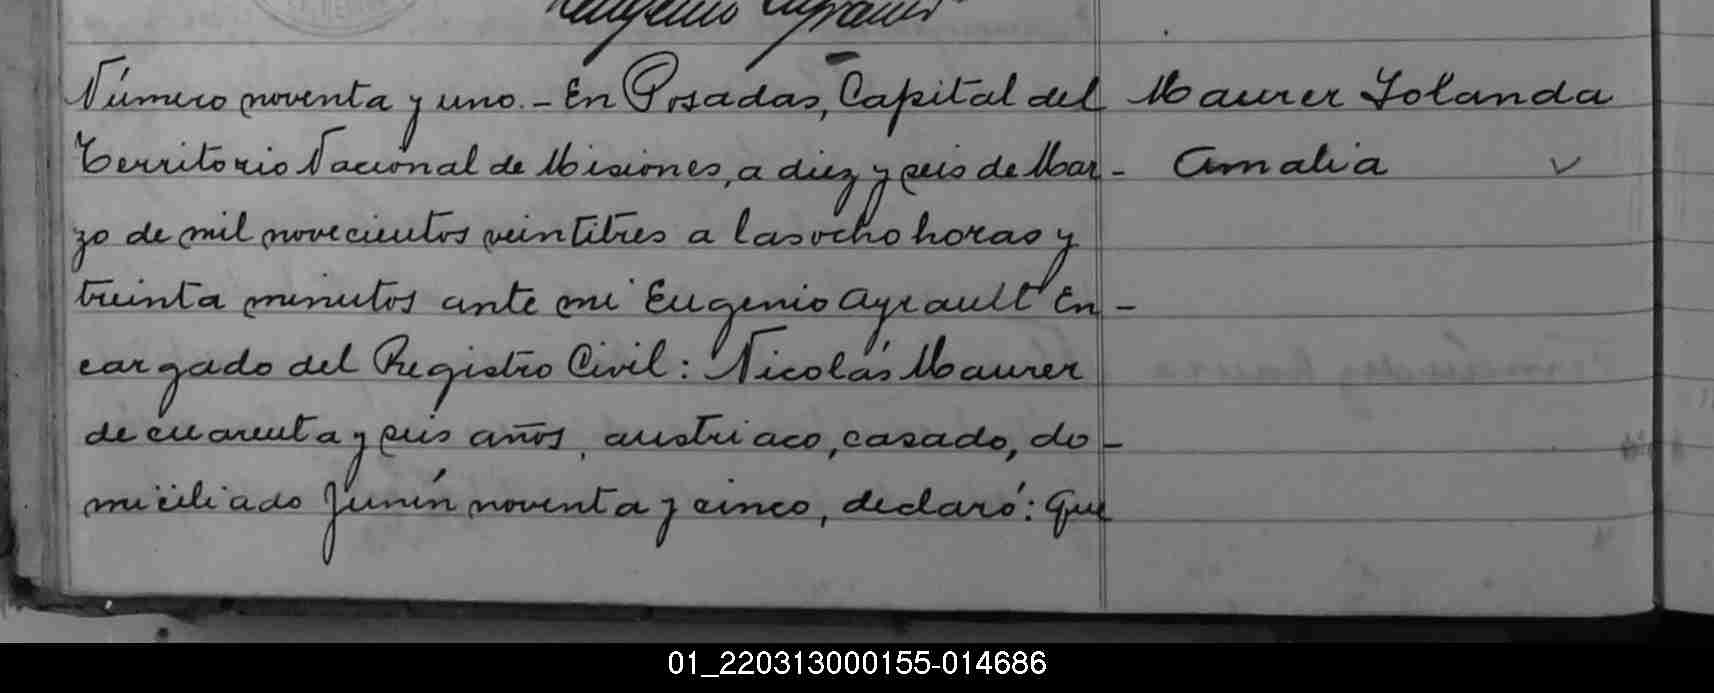 Eugenio Ayrault
Número noventa y uno.- En Posadas, Capital del
Territorio Nacional de Misiones, a diez y seis de Mar-
zo de mil novecientos veintitres a las ocho horas y
treinta minutos ante mi Eugenio Ayrault En-
cargado del Registro Civil: Nicolás Maurer
de cuarenta y seis años, austriaco, casado, do-
miciliado Junín noventa y cinco, declaró: Que
Maurer Yolanda
Amalia
01_220313000155-014686